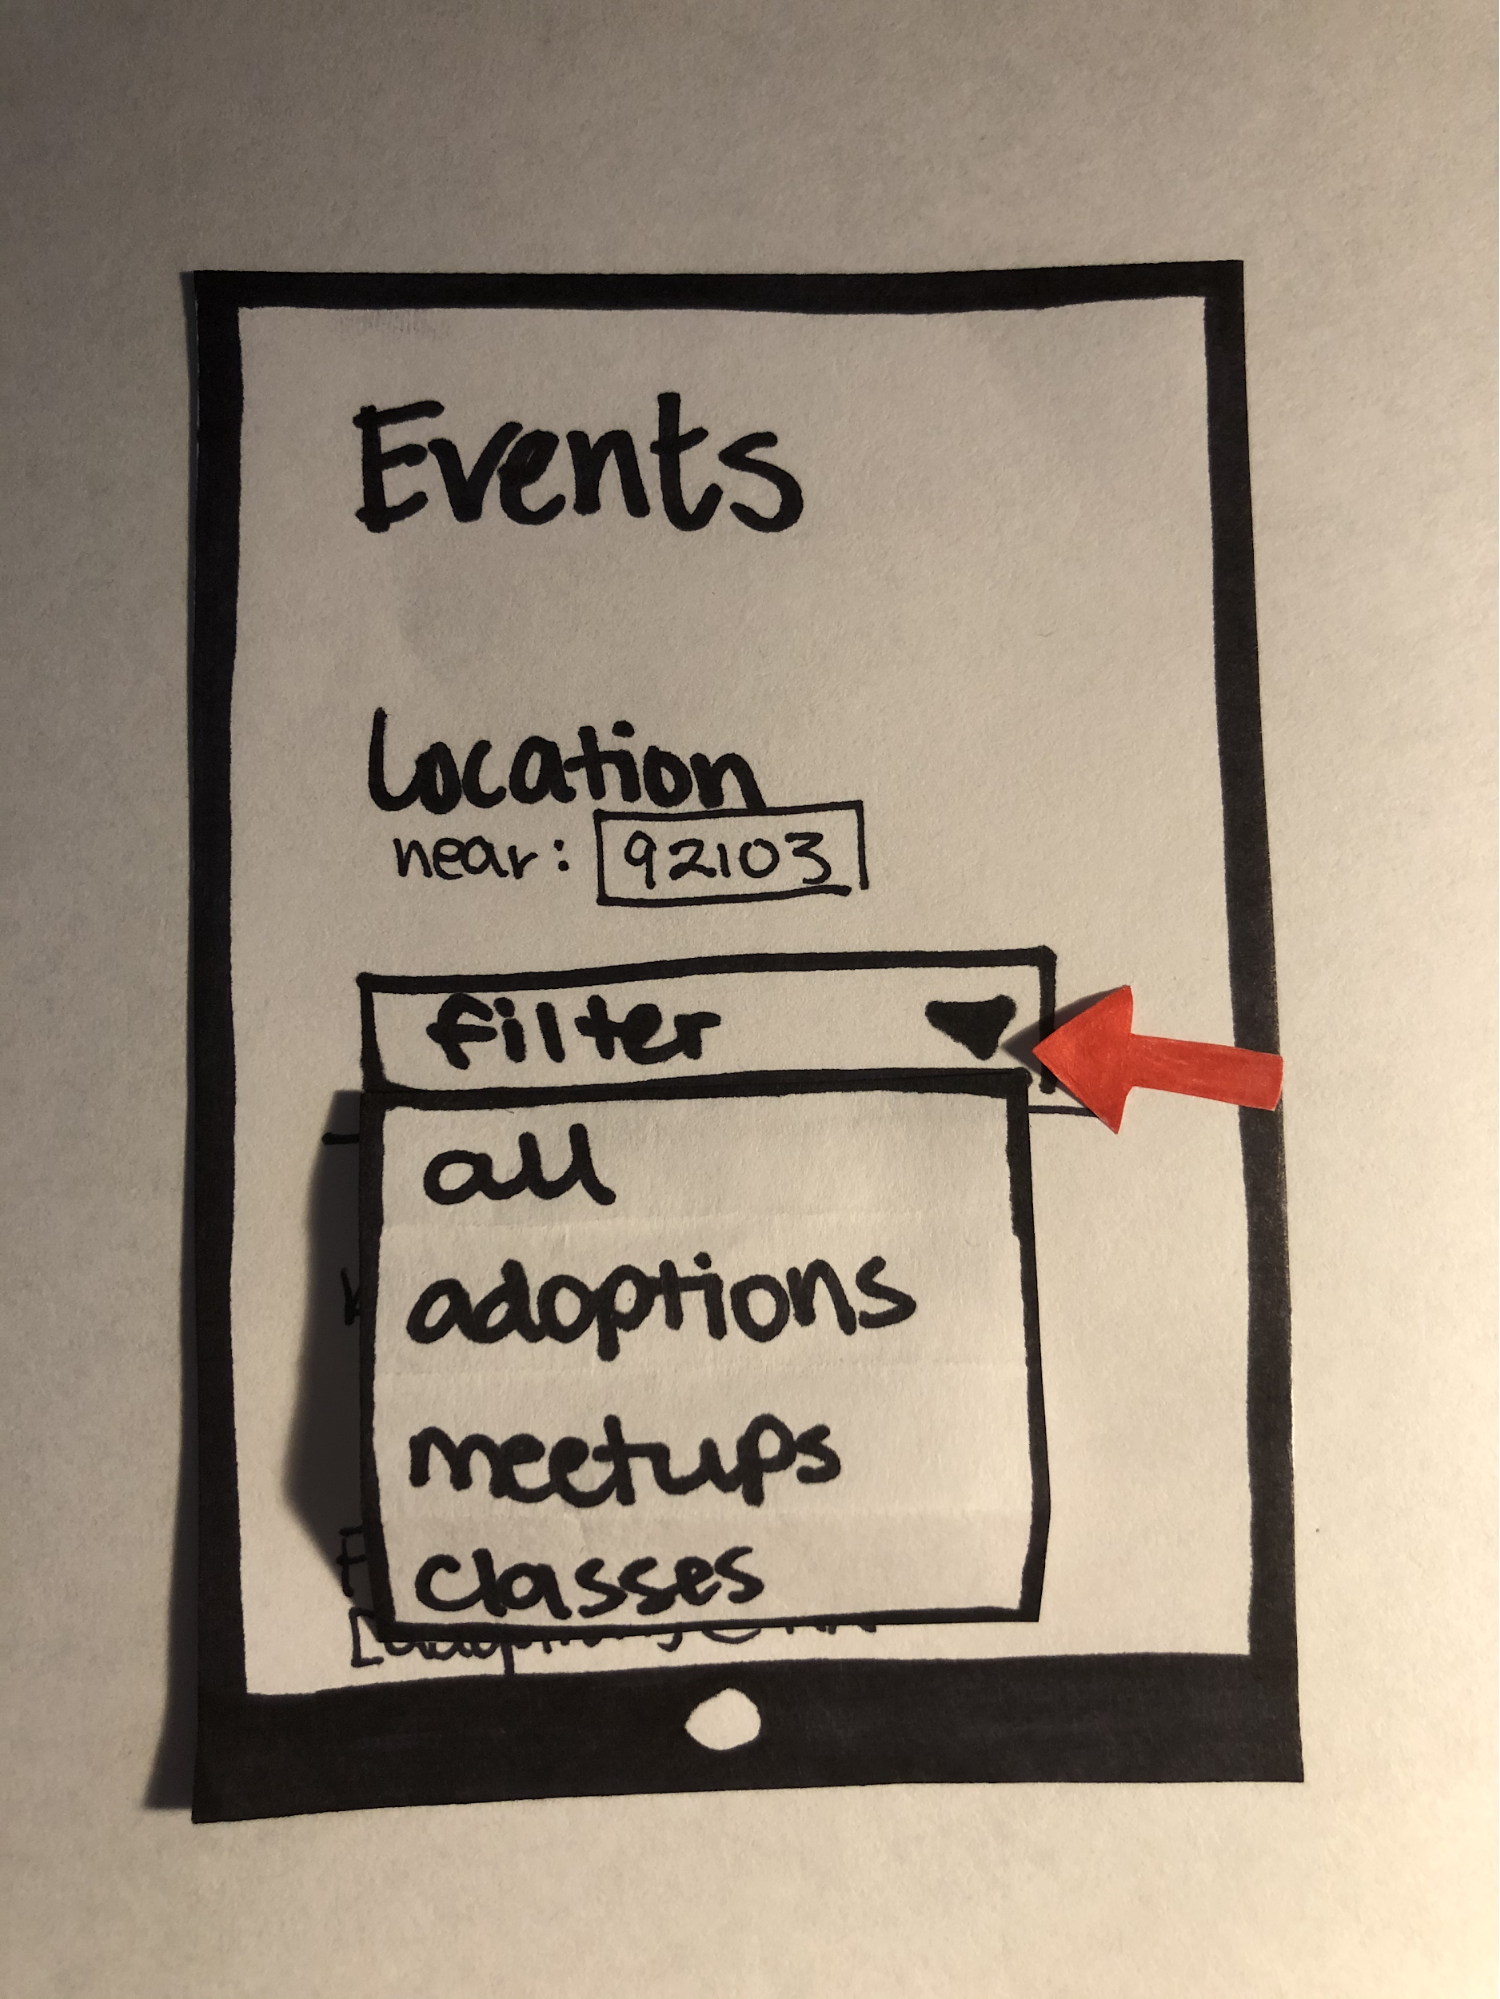 Events
Location
near: 92103
filter
all
adoptions
meetups
classes